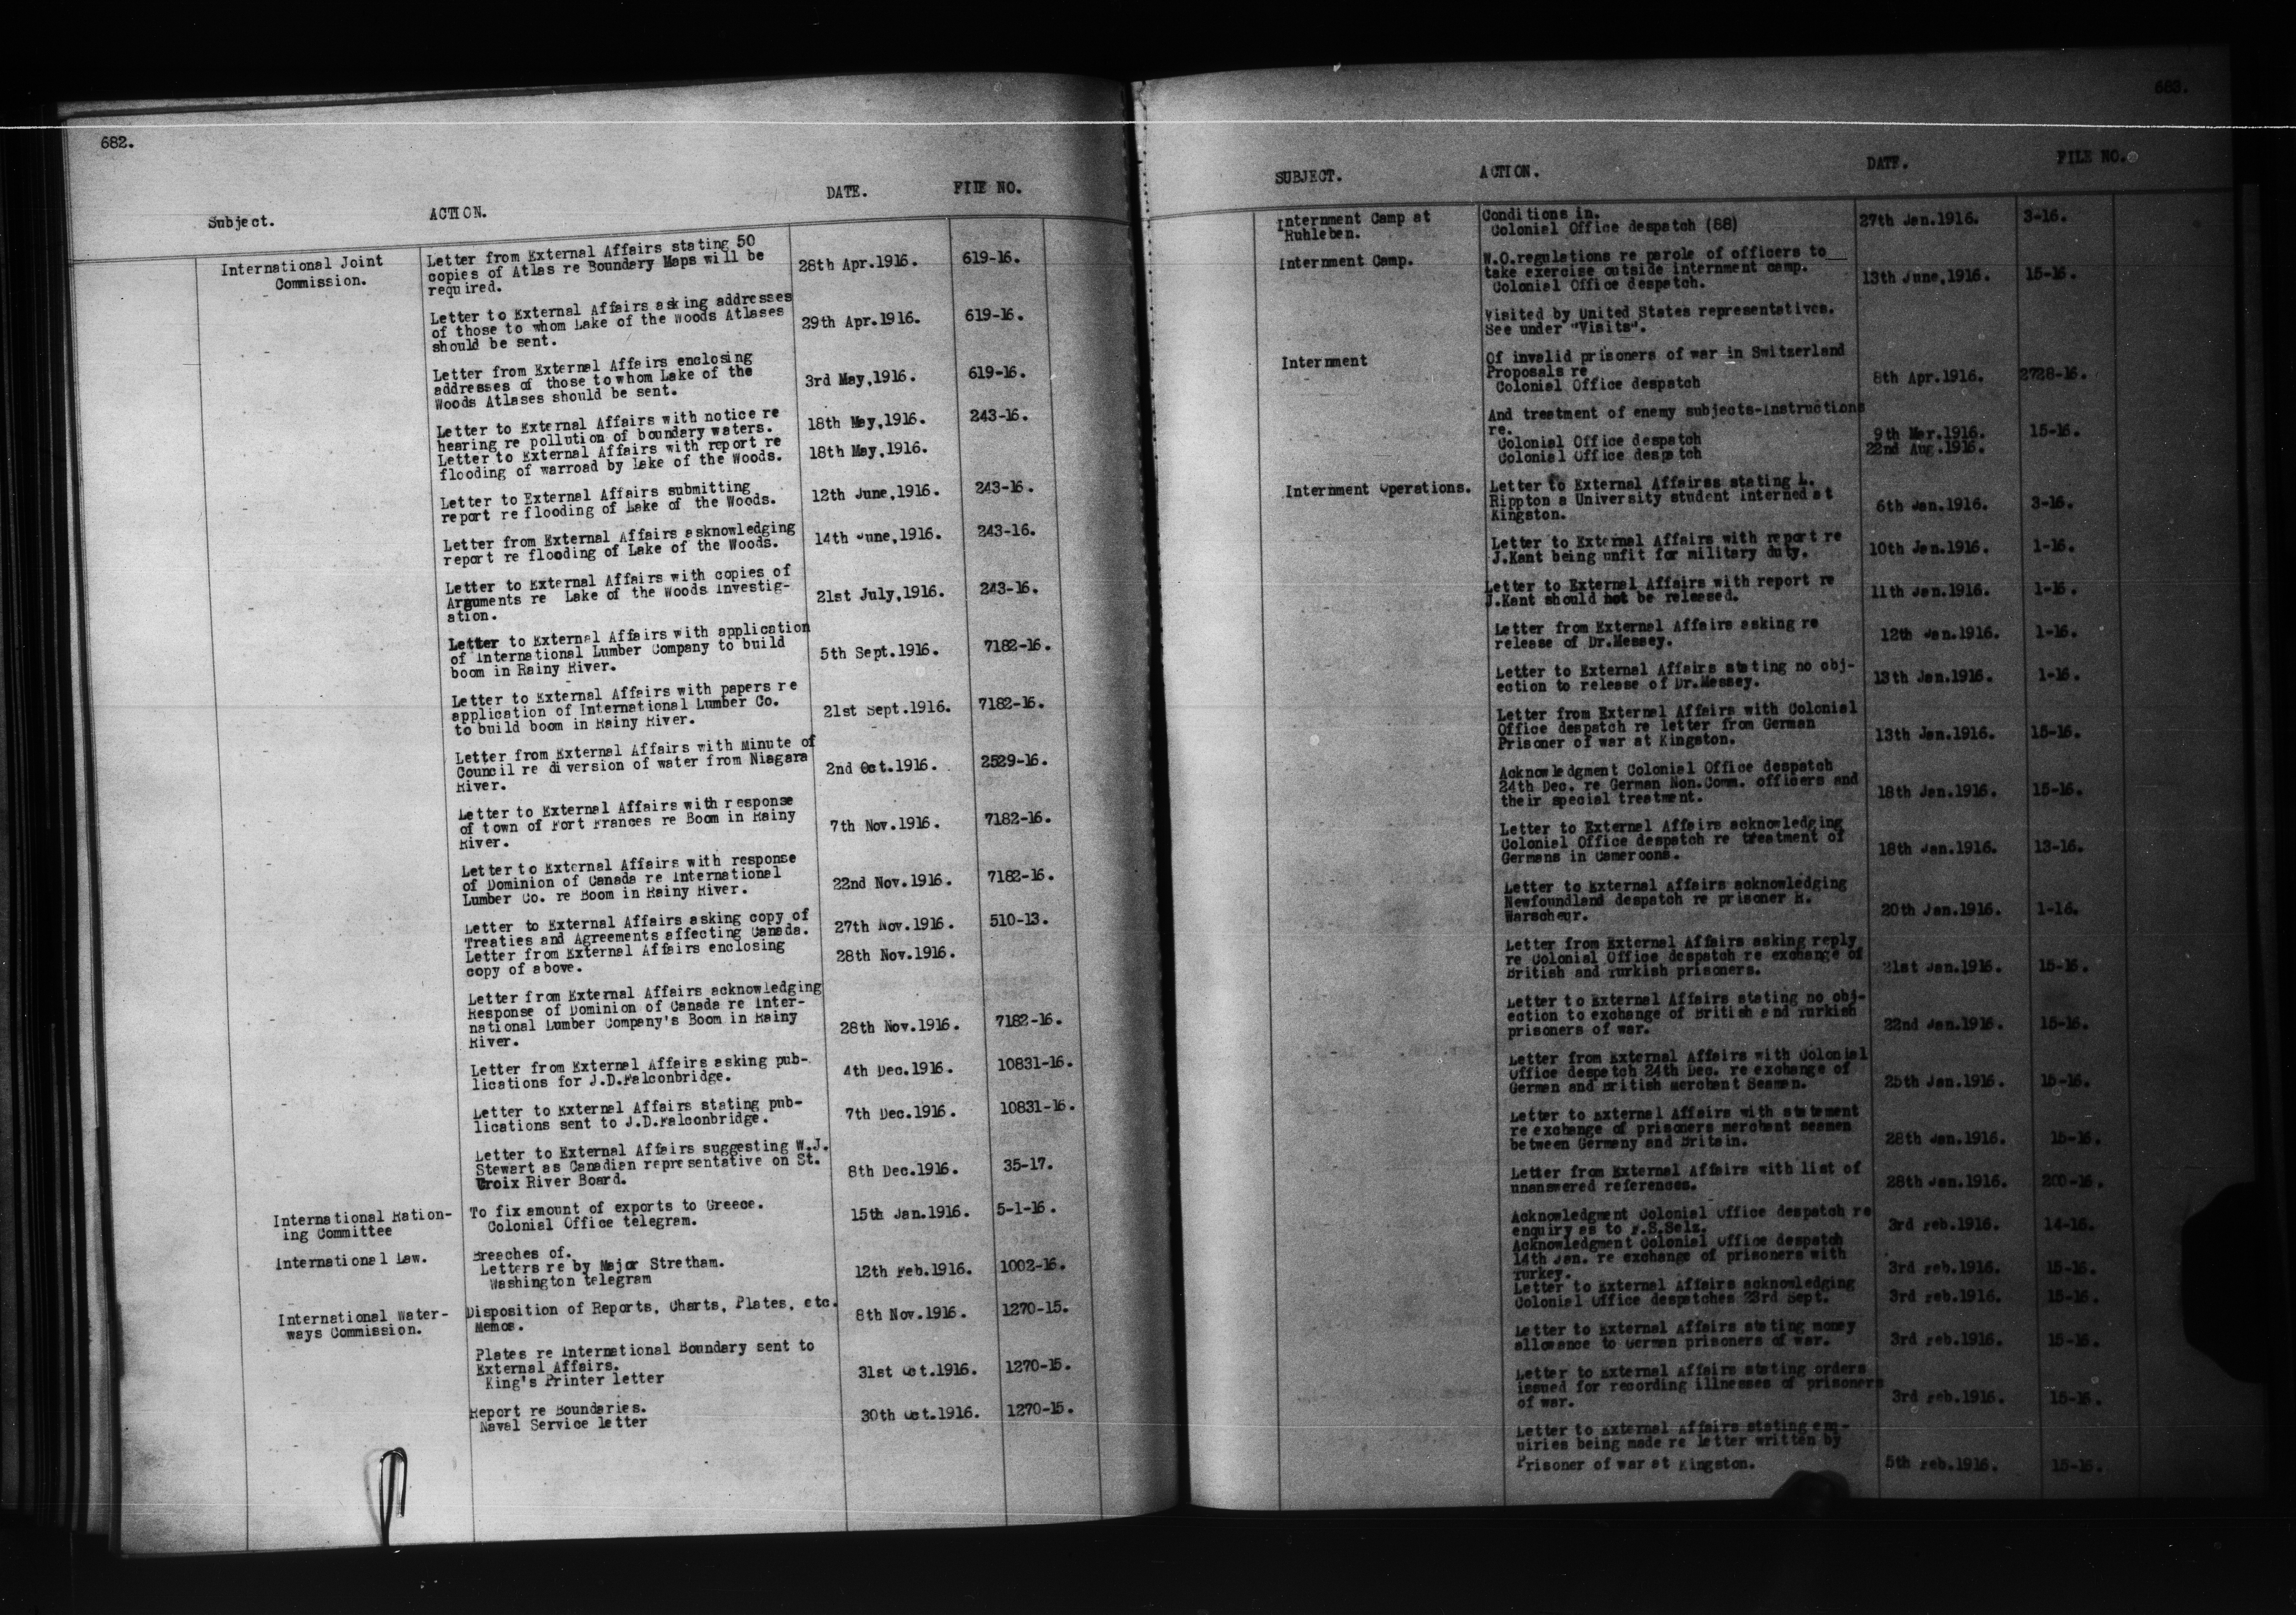 682.
Subject.
ACTION.
DATE.
FILE NO.
International Joint
Commission.
Letter from External Affairs stating 50
copies of Atlas re Boundary Maps will be
required.
28th Apr.1916.
619-16.
Letter to External Affairs asking addresses
of those to whom Lake of the Woods Atlases
should be sent.
29th Apr.1916.
619-16.
Letter from External Affairs enclosing
addresses of those to whom Lake of the
Woods Atlases should be sent.
3rd May,1916.
619-16.
Letter to External Affairs with notice re
hearing re pollution of boundary waters.
18th May,1916.
243-16.
Letter to External Affairs with report re
flooding of warroad by Lake of the Woods.
18th May,1916.
Letter to External Affairs submitting
report re flooding of Lake of the Woods.
12th June,1916.
243-16.
Letter from External Affairs asknowledging
report re flooding of Lake of the Woods.
14th June,1916.
243-16.
Letter to External Affairs with copies of
Arguments re Lake of the Woods Investig-
ation.
21st July,1916.
243-16.
Letter to External Affairs with application
of International Lumber Company to build
boom in Rainy River.
5th Sept.1916.
7182-16.
Letter to External Affairs with papers re
application of International Lumber Co.
to build boom in Rainy River.
21st Sept.1916.
7182-16.
Letter from External Affairs with Minute of
Council re diversion of water from Niagara
River.
2nd Oct.1916.
2529-16.
Letter to External Affairs with response
of town of Fort Frances re Boom in Rainy
River.
7th Nov.1916.
7182-16.
Letter to External Affairs with response
of Dominion of Canada re International
Lumber Co. re Boom in Rainy River.
22nd Nov.1916.
7182-16.
Letter to External Affairs asking copy of
Treaties and Agreements affecting Canada.
27th Nov.1916.
510-13.
Letter from External Affairs enclosing
copy of above.
28th Nov.1916.
Letter from External Affairs acknowledging
Response of Dominion of Canada re Inter-
national Lumber Company's Boom in Rainy
River.
28th Nov.1916.
7182-16.
Letter from External Affairs asking pub-
lications for J.D.Falconbridge.
4th Dec.1916.
10831-16.
Letter to External Affairs stating pub-
lications sent to J.D.Falconbridge.
7th Dec.1916.
10831-16.
Letter to External Affairs suggesting W.J.
Stewart as Canadian representative on St.
Croix River Board.
8th Dec.1916.
35-17.
International Ration-
ing Committee
To fix amount of exports to Greece.
Colonial Office telegram.
15th Jan.1916.
5-1-16.
International Law.
Breaches of.
Letters re by Major Stretham.
Washington telegram
12th Feb.1916.
1002-16.
International Water-
ways Commission.
Disposition of Reports, Charts, Plates, etc.
Memos.
8th Nov.1916.
1270-15.
Plates re International Boundary sent to
External Affairs.
King's Printer letter
31st Oct.1916.
1270-15.
Report re Boundaries.
Naval Service letter
30th Oct.1916.
1270-15.
683.
SUBJECT.
ACTION.
DATE.
FILE NO.
Internment Camp at
Ruhleben.
Conditions in.
Colonial Office despatch (88)
27th Jan.1916.
3-16.
Internment Camp.
W.O.regulations re parole of officers to
take exercise outside internment camp.
Colonial Office despatch.
13th June,1916.
15-16.
Visited by United States representatives.
See under "Visits".
Internment
Of invalid prisoners of war in Switzerland
Proposals re
Colonial Office despatch
8th Apr.1916.
2728-16.
And treatment of enemy subjects-Instructions
re.
Colonial Office despatch
9th Mar.1916.
15-16.
Colonial Office despatch
22nd Aug.1916.
Internment Operations.
Letter to External Affairss stating L.
Rippton a University student interned at
Kingston.
6th Jan.1916.
3-16.
Letter to External Affairs with report re
J.Kant being unfit for military duty.
10th Jan.1916.
1-16.
Letter to External Affairs with report re
J.Kant should not be released.
11th Jan.1916.
1-16.
Letter from External Affairs asking re
release of Dr.Massey.
12th Jan.1916.
1-16.
Letter to External Affairs stating no obj-
ection to release of Dr.Massey.
13th Jan.1916.
1-16.
Letter from External Affairs with Colonial
Office despatch re letter from German
Prisoner of war at Kingston.
13th Jan.1916.
15-16.
Acknowledgment Colonial Office despatch
24th Dec. re German Non.Comm. officers and
their special treatment.
18th Jan.1916.
15-16.
Letter to External Affairs acknowledging
Colonial Office despatch re treatment of
Germans in Cameroons.
18th Jan.1916.
13-16.
Letter to External Affairs acknowledging
Newfoundland despatch re prisoner R.
Warscheur.
20th Jan.1916.
1-16.
Letter from External Affairs asking reply
re Colonial Office despatch re exchange of
British and Turkish prisoners.
21st Jan.1916.
15-16.
Letter to External Affairs stating no obj-
ection to exchange of British and Turkish
prisoners of war.
22nd Jan.1916.
15-16.
Letter from External Affairs with Colonial
Office despatch 24th Dec. re exchange of
German and British Merchant Seamen.
25th Jan.1916.
15-16.
Letter to External Affairs with statement
re exchange of prisoners merchant seamen
between Germany and Britain.
28th Jan.1916.
15-16.
Letter from External Affairs with list of
unanswered references.
28th Jan.1916.
200-16.
Acknowledgment Colonial Office despatch re
enquiry as to F.S.Selz.
3rd Feb.1916.
14-16.
Acknowledgment Colonial Office despatch
14th Jan. re exchange of prisoners with
Turkey.
3rd Feb.1916.
15-16.
Letter to External Affairs acknowledging
Colonial Office despatches 23rd Sept.
3rd Feb.1916.
15-16.
Letter to External Affairs stating money
allowance to German prisoners of war.
3rd Feb.1916.
15-16.
Letter to External Affairs stating orders
issued for recording illnesses of prisoners
of war.
3rd Feb.1916.
15-16.
Letter to External Affairs stating enq-
uiries being made re letter written by
Prisoner of war at Kingston.
5th Feb.1916.
15-16.